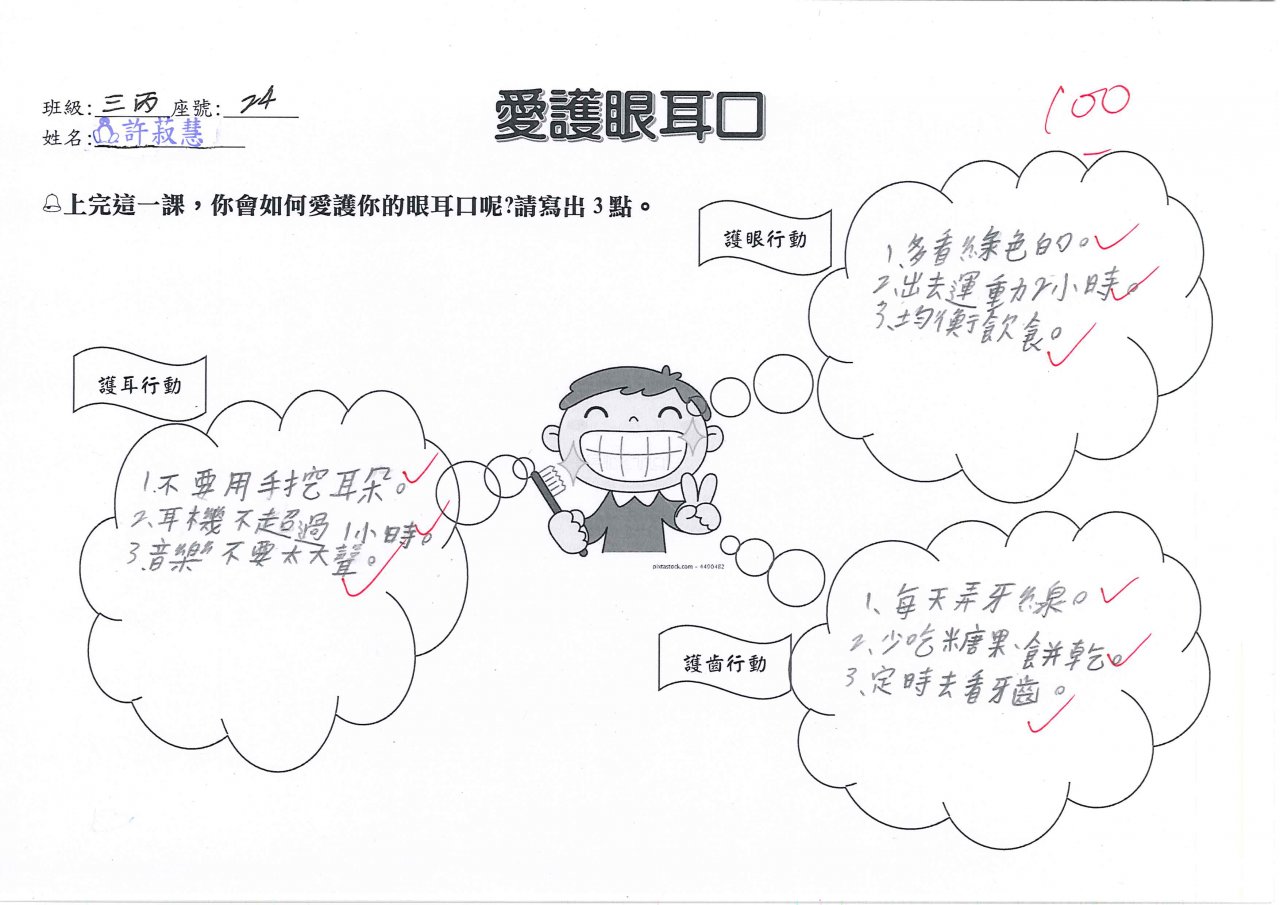 愛護眼耳口
班級:三丙 座號: 24
姓名:許菽慧
100
上完這一課，你會如何愛護你的眼耳口呢?請寫出 3 點。
護眼行動
1、多看綠色的。
2、出去運動2小時。
3、均衡飲食。
護耳行動
1.不要用手挖耳朵。
2、耳機不超過1小時。
3、音樂不要太大聲。
pixtastock.com - 4490482
護齒行動
1、每天弄牙線。
2、少吃糖果、餅乾。
3、定時去看牙齒。